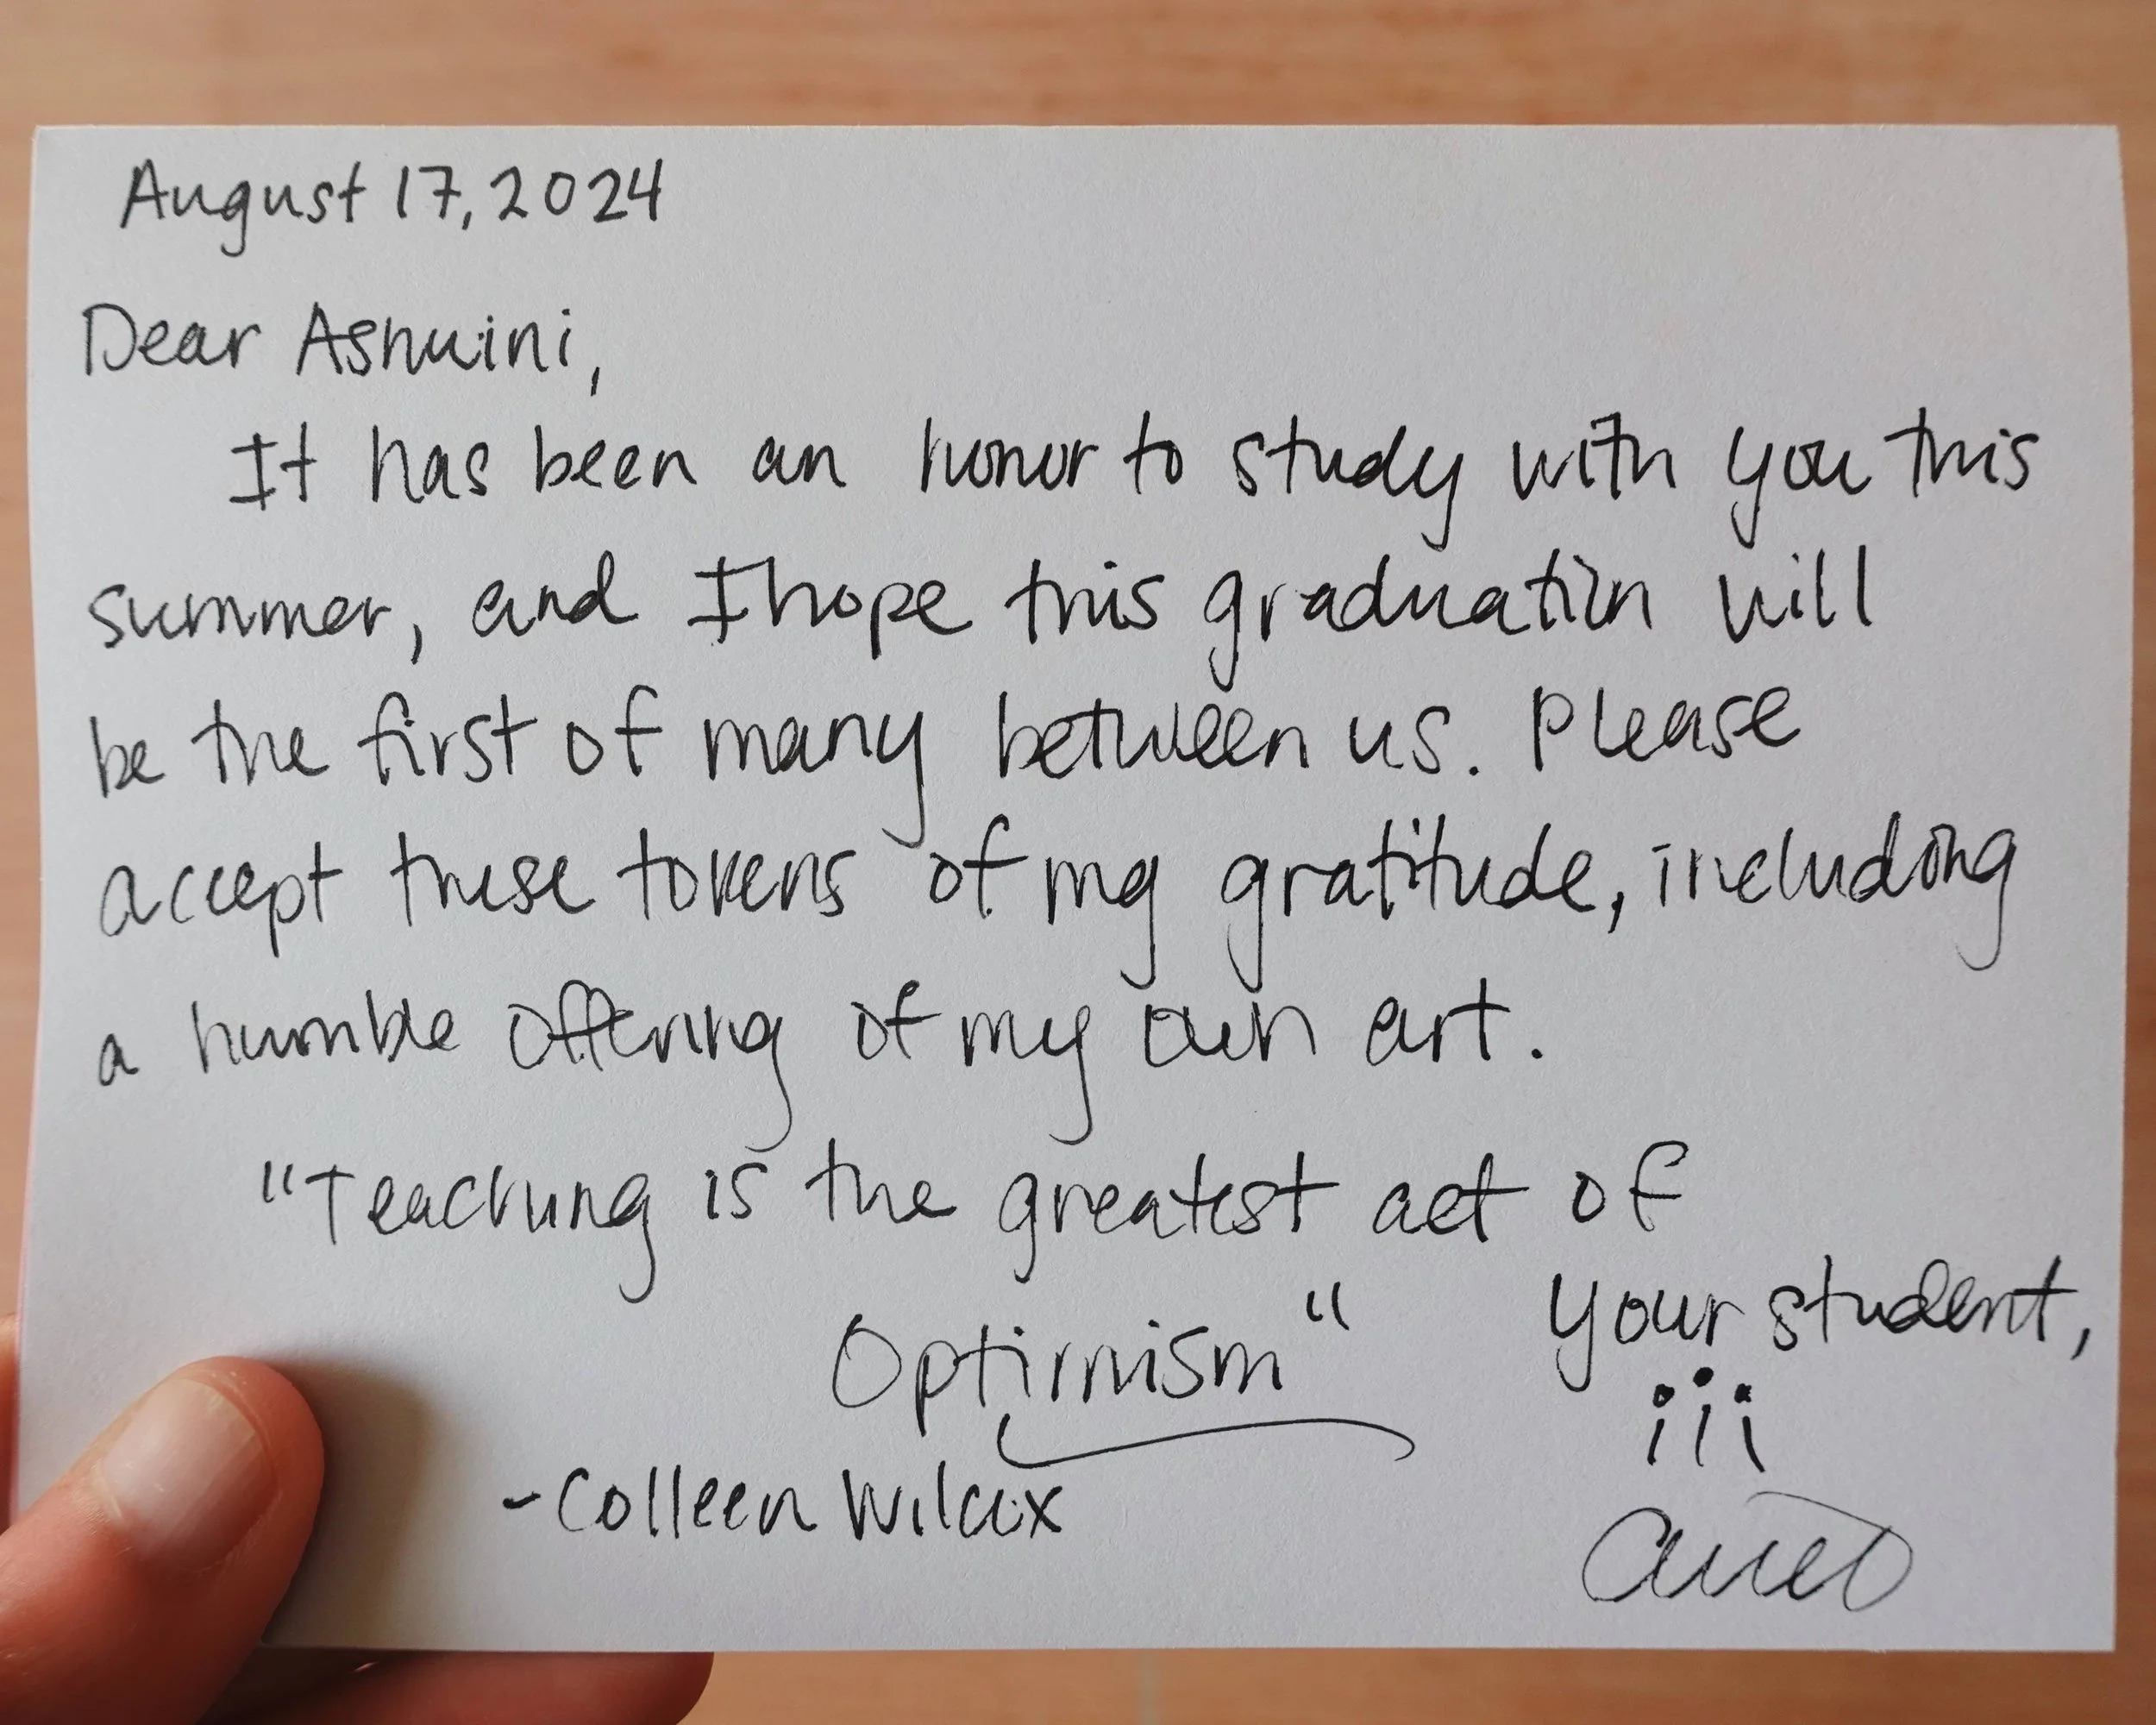 August 17, 2024
Dear Ashwini,
It has been an honor to study with you this
summer, and I hope this graduation will
be the first of many between us. Please
accept these tokens of my gratitude, including
a humble offering of my own art.
"Teaching is the greatest act of
Optimism"
-Colleen Wilcox
Your student,
iii